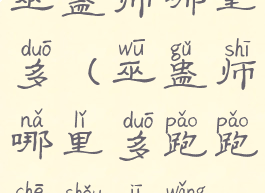 巫蛊师哪里
duō wū gǔ shī
多（巫蛊师
nǎ lǐ duō pǎo pǎo
哪里多跑跑
chē shǒu jī wǎng